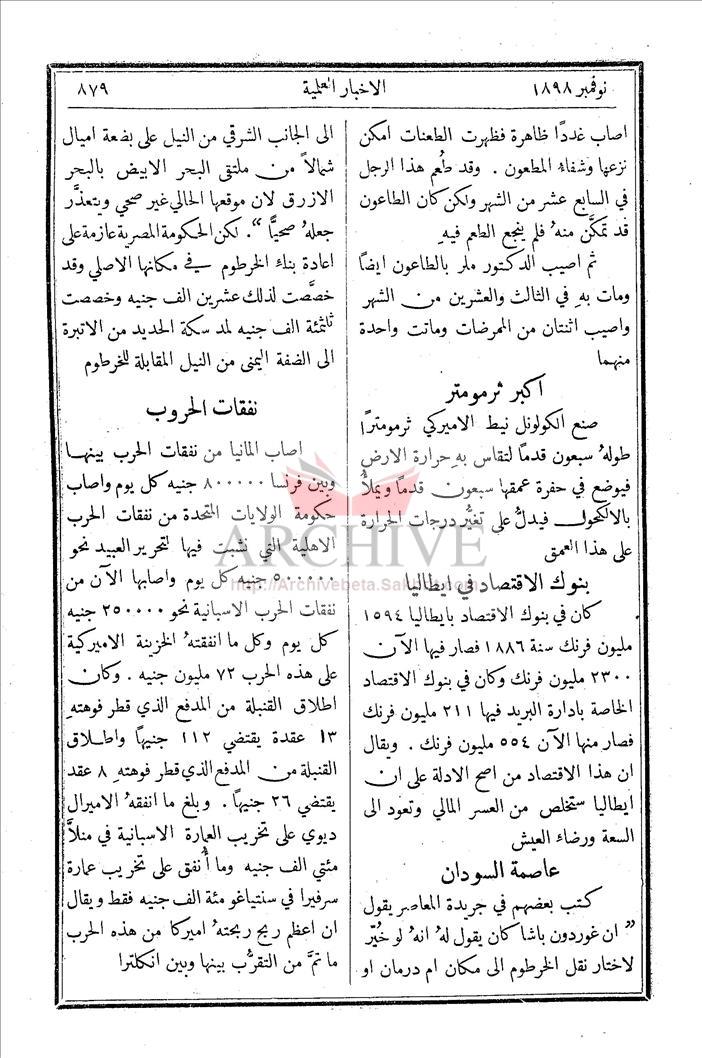 نوفمبر ١٨٩٨
الاخبار العلمية
٨٧٩
اصاب غددًا ظاهرة فظهرت الطعنات امكن
نزعها وشفاءُ المطعون . وقد طُعم هذا الرجل
في السابع عشر من الشهر ولكن كان الطاعون
قد تمكَّن منهُ فلم ينجع الطعم فيهِ
ثم اصيب الدكتور ملر بالطاعون ايضًا
ومات بهِ في الثالث والعشرين من الشهر
واصيب اثنتان من الممرضات وماتت واحدة
منهما
اكبر ثرمومتر
صنع الكولونل نيط الاميركي ثرمومترًا
طولهُ سبعون قدمًا لتقاس بهِ حرارة الارض
فيوضع في حفرة عمقها سبعون قدمًا ويملأُ
بالالكحول فيدلُّ على تغيُّر درجات الحرارة
على هذا العمق
بنوك الاقتصاد في ايطاليا
كان في بنوك الاقتصاد بايطاليا ١٥٩٤
مليون فرنك سنة ١٨٨٦ فصار فيها الآن
٢٣٠٠ مليون فرنك وكان في بنوك الاقتصاد
الخاصة بادارة البريد فيها ٢١١ مليون فرنك
فصار منها الآن ٥٥٤ مليون فرنك . ويقال
ان هذا الاقتصاد من اصح الادلة على ان
ايطاليا ستخلص من العسر المالي وتعود الى
السعة ورضاء العيش
عاصمة السودان
كتب بعضهم في جريدة المعاصر يقول
” ان غوردون باشا كان يقول لهُ انهُ لو خُيّر
لاختار نقل الخرطوم الى مكان ام درمان او
الى الجانب الشرقي من النيل على بضعة اميال
شمالاً من ملتقى البحر الابيض بالبحر
الازرق لان موقعها الحالي غير صحي ويتعذَّر
جعلهُ صحيًّا “. لكن الحكومة المصرية عازمة على
اعادة بناء الخرطوم في مكانها الاصلي وقد
خصَّصت لذلك عشرين الف جنيه وخصصت
ثلثمئة الف جنيه لمد سكة الحديد من الاتبرة
الى الضفة اليمنى من النيل المقابلة للخرطوم
نفقات الحروب
اصاب المانيا من نفقات الحرب بينها
وبين فرنسا ٨٠٠٠٠٠ جنيه كل يوم واصاب
حكومة الولايات المتحدة من نفقات الحرب
الاهلية التي نشبت فيها لتحرير العبيد نحو
٥٠٠٠٠٠ جنيه كل يوم واصابها الآن من
نفقات الحرب الاسبانية نحو ٢٥٠٠٠٠ جنيه
كل يوم وكل ما انفقتهُ الخزينة الاميركية
على هذه الحرب ٧٢ مليون جنيه . وكان
اطلاق القنبلة من المدفع الذي قطر فوهتهِ
١٣ عقدة يقتضي ١١٢ جنيهًا واطلاق
القنبلة من المدفع الذي قطر فوهتهِ ٨ عقد
يقتضي ٢٦ جنيهًا . وبلغ ما انفقهُ الاميرال
ديوي على تخريب العمارة الاسبانية في منلاَّ
مئتي الف جنيه وما أُنفق على تخريب عمارة
سرفيرا في سنتياغو مئة الف جنيه فقط ويقال
ان اعظم ربح ربحتهُ اميركا من هذه الحرب
ما تمَّ من التقرُّب بينها وبين انكلترا
ARCHIVE
http://Archivebeta.Sakhrit.com